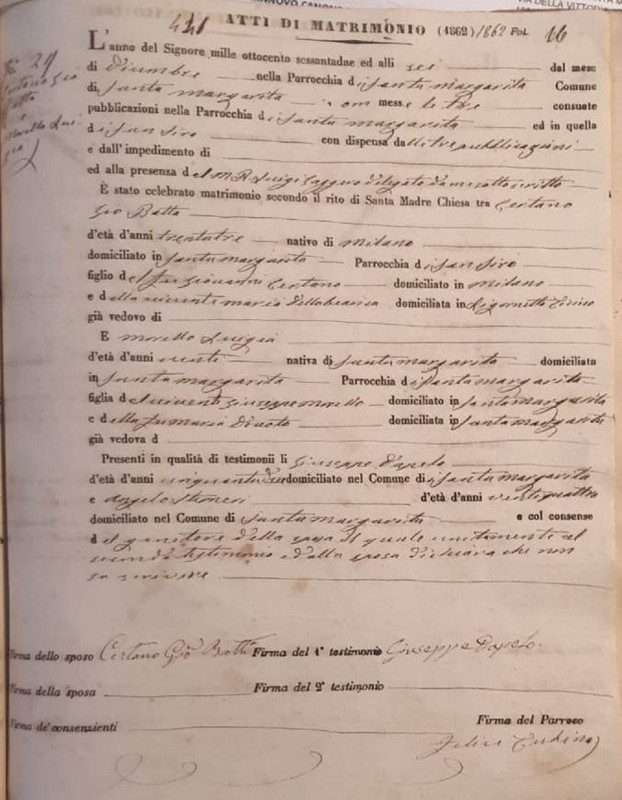 ATTI DI MATRIMONIO (1862) 1862 Fol. 16
L'anno del Signore mille ottocento sessantadue ed alli sei del mese
di Dicembre nella Parrocchia di Santa Margarita Comune
di Santa Margarita messe le tre consuete
pubblicazioni nella Parrocchia di Santa Margarita ed in quella
di San Siro con dispensa dalle tre pubblicazioni
e dall'impedimento di
ed alla presenza del M. R. Luigi delegato da me sottoscritto
È stato celebrato matrimonio secondo il rito di Santa Madre Chiesa tra Certano
Gio Batta
d'età d'anni trentatre nativo di Milano
domiciliato in Santa Margarita Parrocchia di San Siro
figlio del fu Giovanni Certano domiciliato in Milano
e della vivente Maria domiciliata in Ligornetto Ticino
già vedovo di
E Morello Luigia
d'età d'anni venti nativa di Santa Margarita domiciliata
in Santa Margarita Parrocchia di Santa Margarita
figlia del vivente Giuseppe Morello domiciliato in Santa Margarita
e della fu Maria domiciliata in Santa Margarita
già vedova d
Presenti in qualità di testimonii li Giuseppe Dapelo
d'età d'anni cinquanta domiciliato nel Comune di Santa Margarita
e Angelo d'età d'anni ventiquattro
domiciliato nel Comune di Santa Margarita e col consenso
del genitore della sposa il quale unitamente al
secondo testimonio e dalla sposa dichiara che non
sa scrivere
Firma dello sposo Certano Gio Batta Firma del 1º testimonio Giuseppe Dapelo.
Firma della sposa Firma del 2º testimonio
Firma de' consenzienti Firma del Parroco
Felice